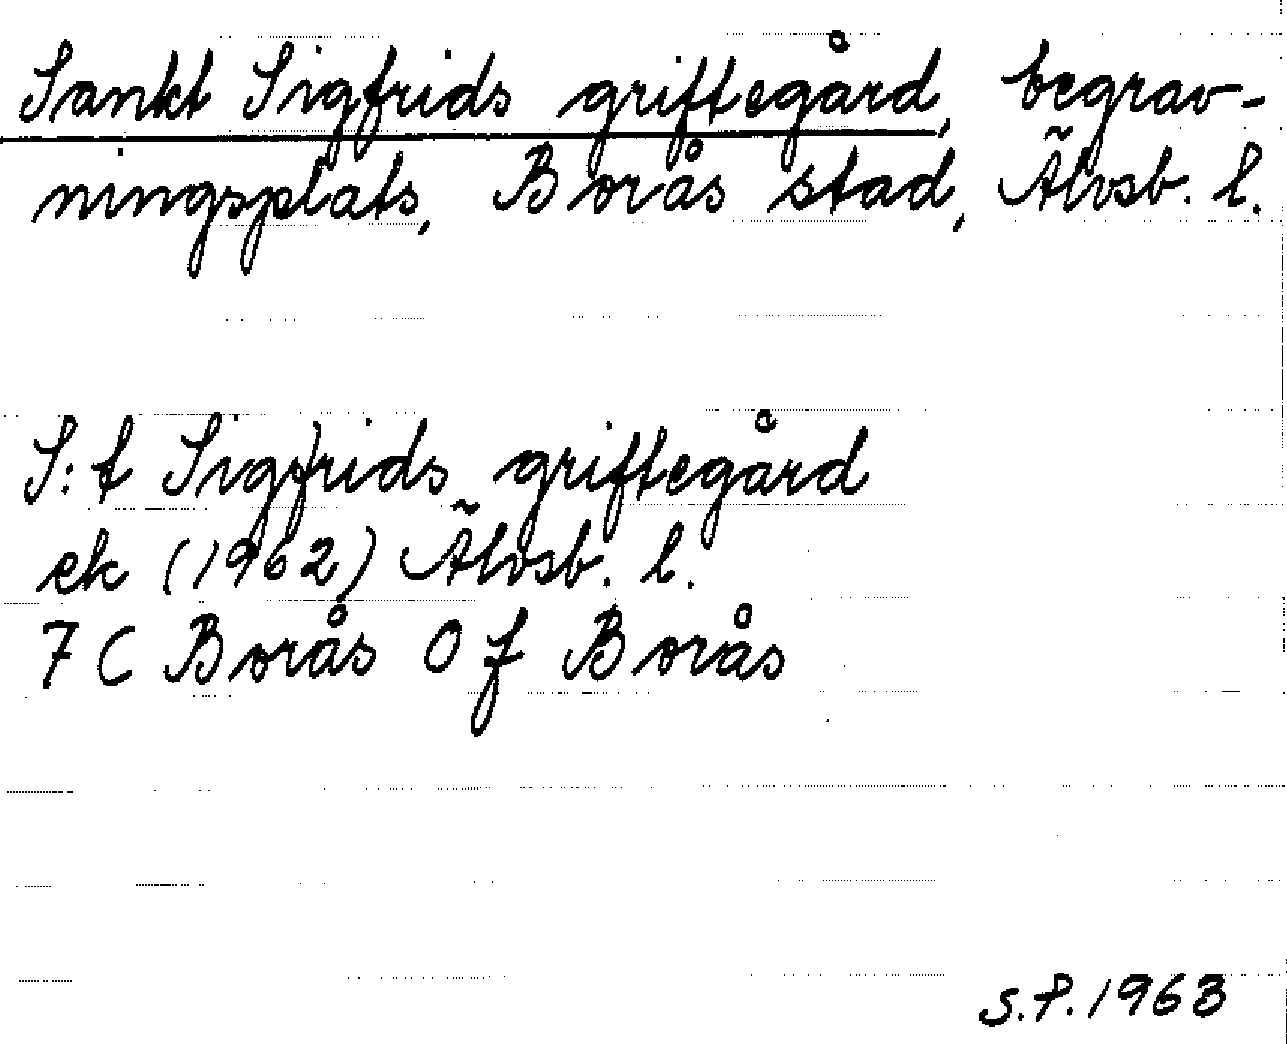 Sankt Sigfrids griftegård, begrav-
ningsplats, Borås stad, Älvsb. l.
S:t Sigfrids griftegård
ek (1962) Älvsb. l.
7 C Borås 0 f Borås
S.P. 1963